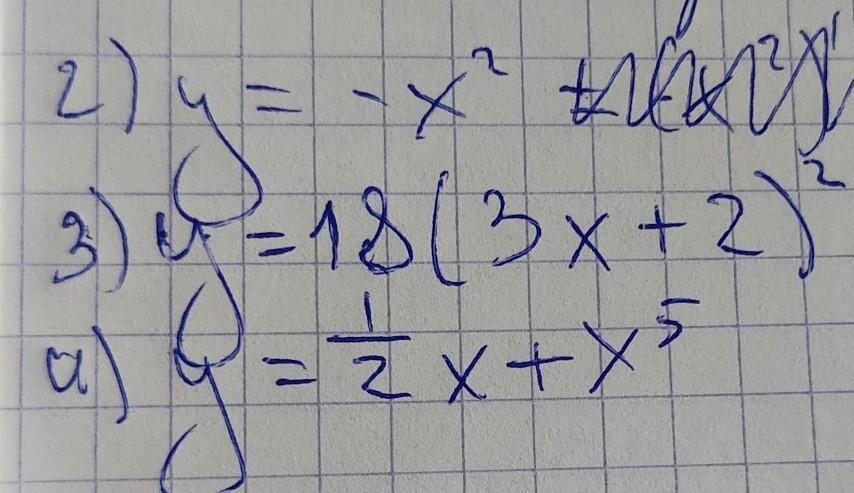 2) y = -x²
3) y = 18(3x + 2)²
4) y = 1/2 x + x⁵